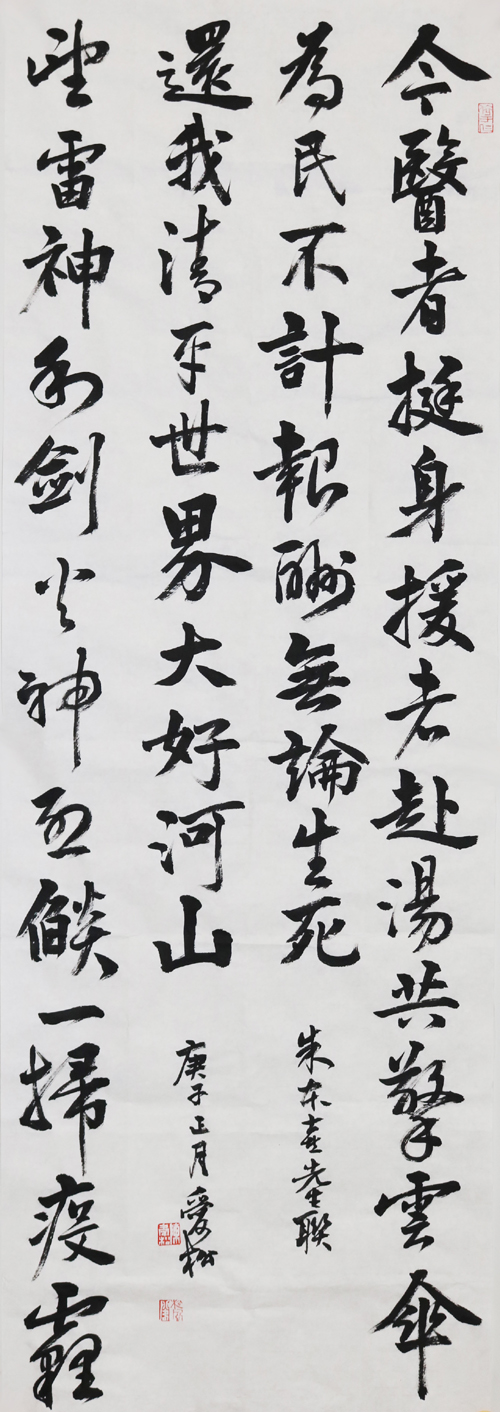 今醫者挺身援者赴湯共擎雲傘
為民不計報酬無論生死
朱東喜先生聯
望雷神利劍火神烈燄一掃疫霾
還我清平世界大好河山
庚子正月愛松